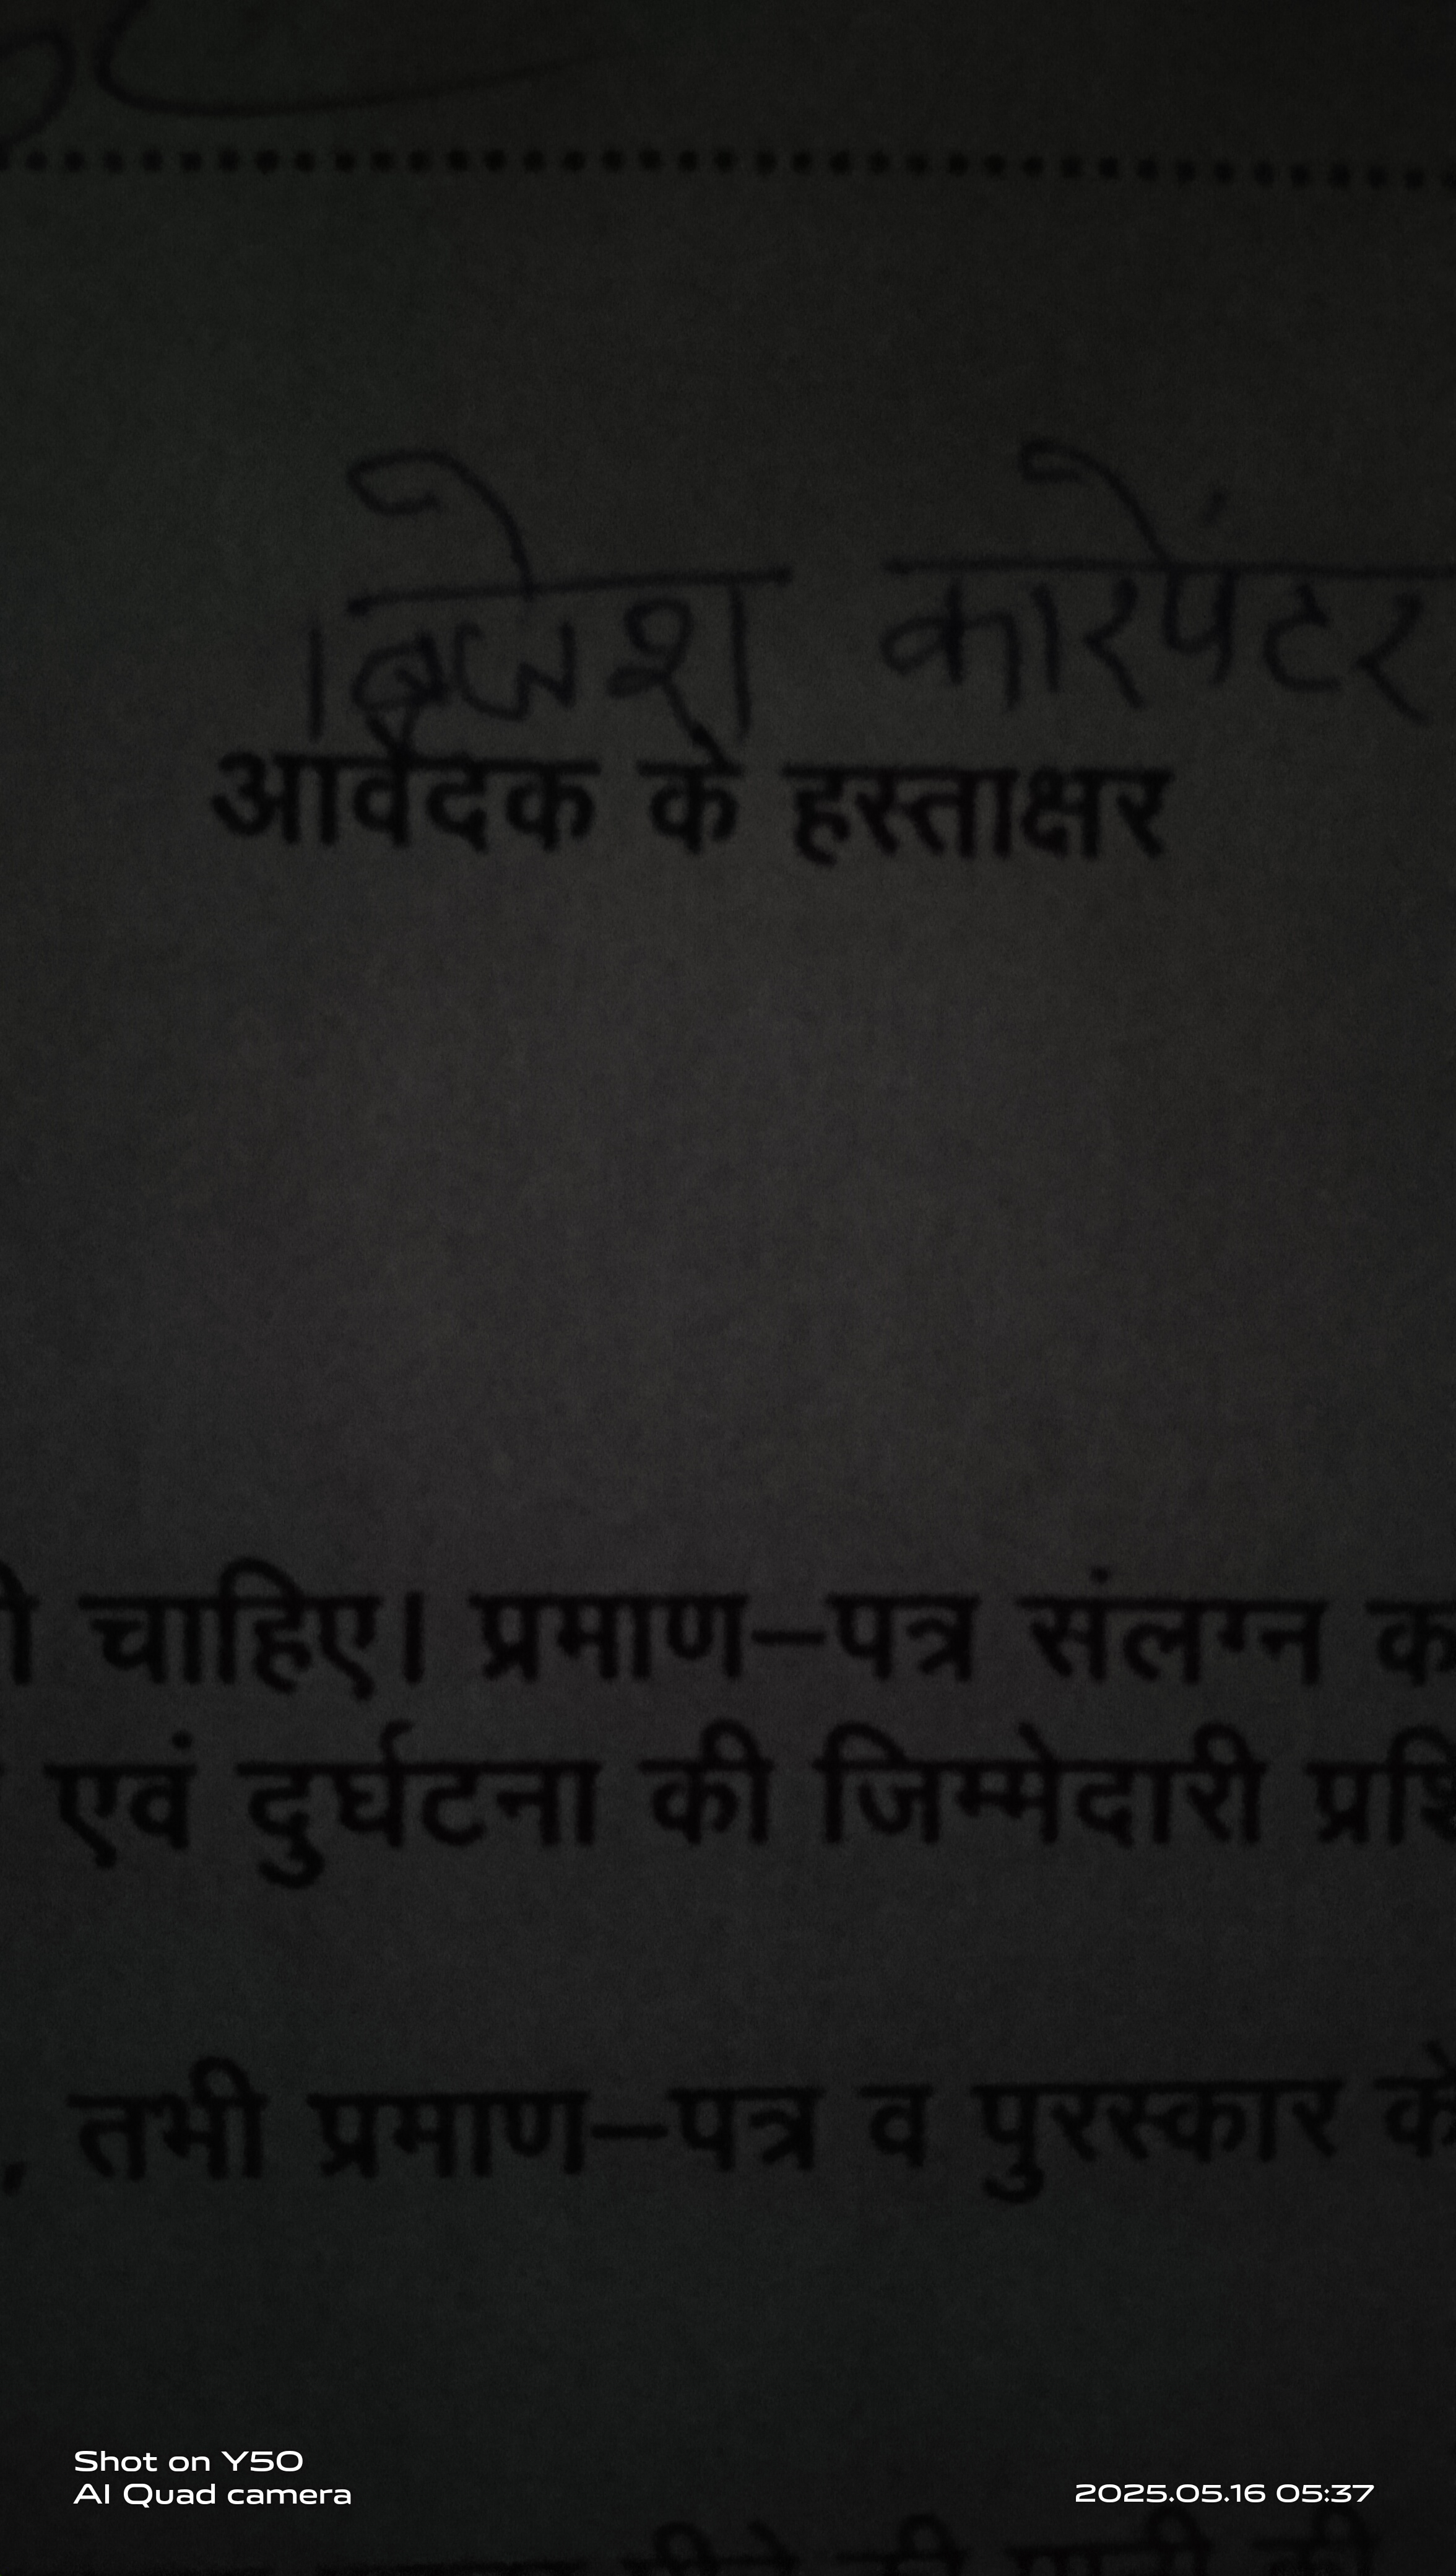 ब्रिजेश कारपेंटर
आवेदक के हस्ताक्षर
चाहिए। प्रमाण–पत्र संलग्न
एवं दुर्घटना की जिम्मेदारी
, तभी प्रमाण–पत्र व पुरस्कार के
Shot on Y50
AI Quad camera
2025.05.16 05:37